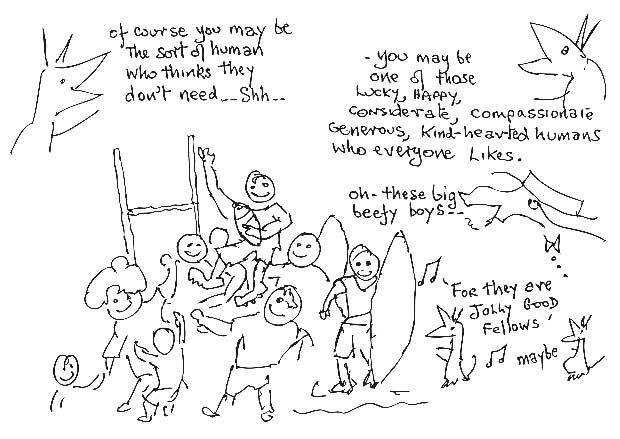 of course you may be
the sort of human
who thinks they
don't need---Shh--
- you may be
one of those
Lucky, HAPPY,
considerate, compassionate
Generous, kind-hearted humans
who everyone Likes.
oh- these big
beefy boys--
'For they are
Jolly Good
Fellows'
maybe